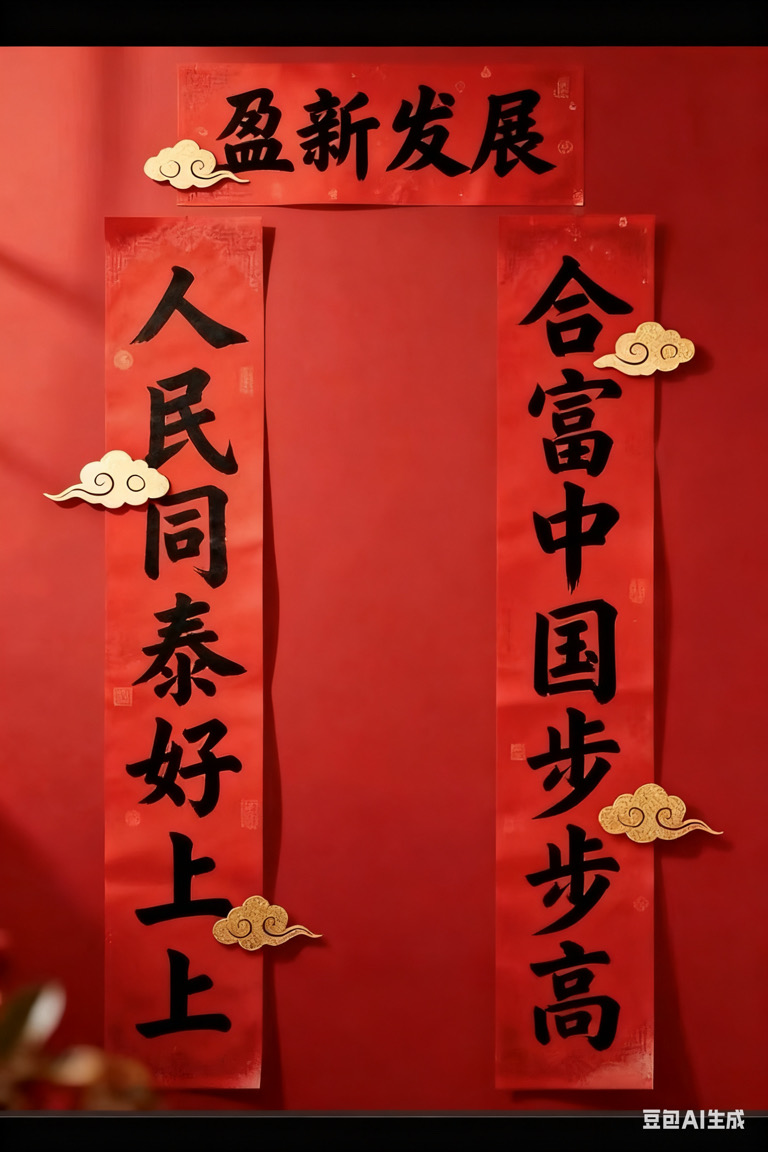 盈新发展
合富中国步步高
人民同泰好上上
豆包AI生成